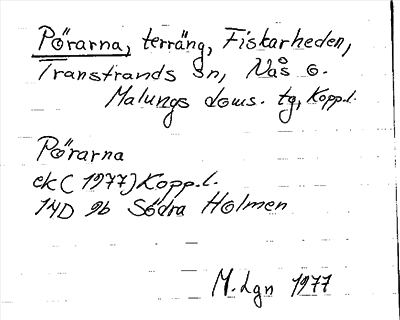 Pörarna, terräng, Fiskarheden,
Transtrands sn, Nås o.
Malungs doms. tg, Kopp.l.
Pörarna
ek (1977) Kopp.l.
14D 9b Södra Holmen
M.Lgn 1977